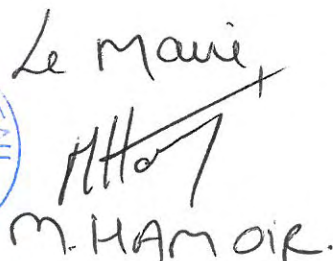 Le Maire,
M. HAMOIR.